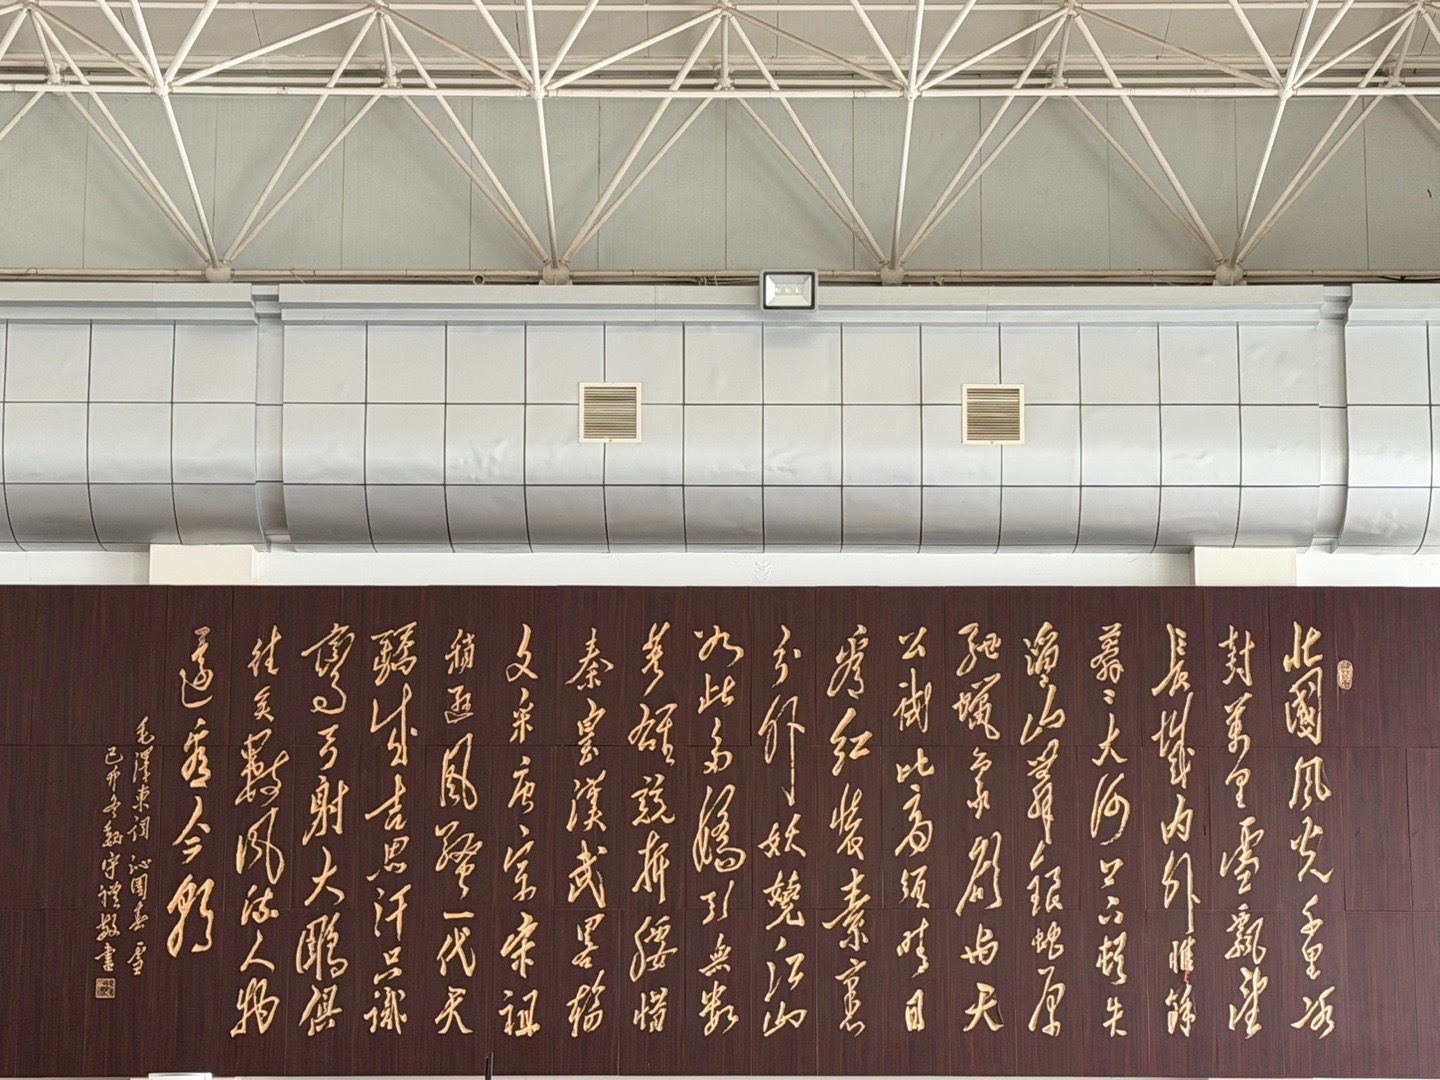 北國風光千里冰
封萬里雪飄望
長城內外惟餘
莽〻大河上下頓失
滔〻山舞銀蛇原
馳蠟象欲與天
公試比高須晴日
看紅裝素裹
分外妖嬈江山
如此多嬌引無數
英雄競折腰惜
秦皇漢武略輸
文采唐宗宋祖
稍遜風騷一代天
驕成吉思汗只識
彎弓射大鵰俱
往矣數風流人物
還看今朝
毛澤東詞沁園春雪
己卯冬 書